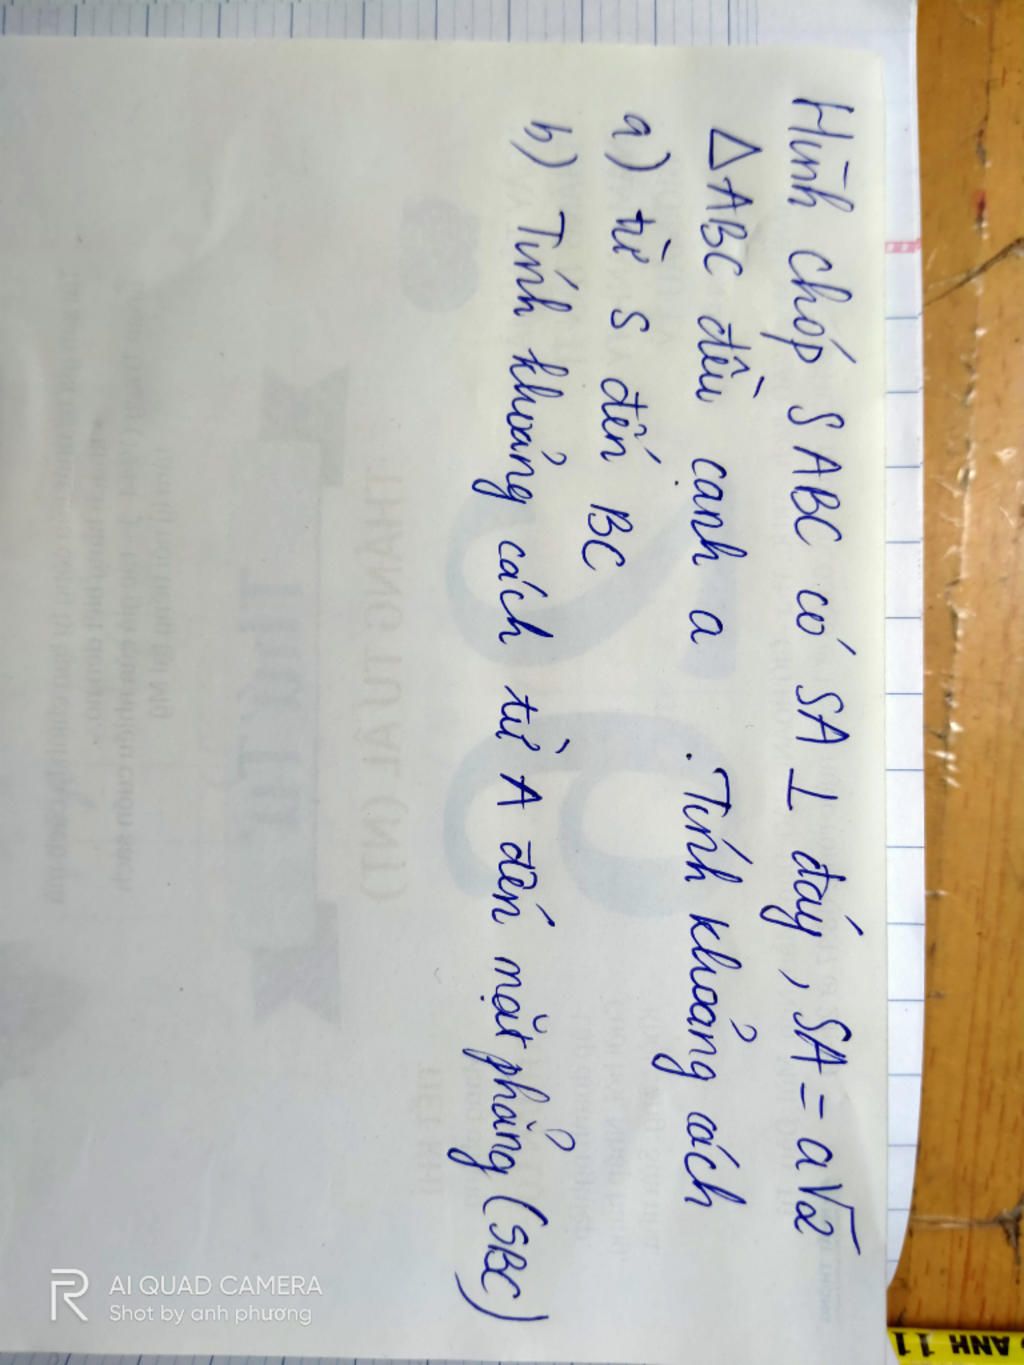 Hình chóp SABC có SA ⊥ đáy, SA = a√2
△ABC đều cạnh a . Tính khoảng cách
a) từ S đến BC
b) Tính khoảng cách từ A đến mặt phẳng (SBC)
THÁNG TƯ ÂL (NT)
AI QUAD CAMERA
Shot by anh phương
ANH 11